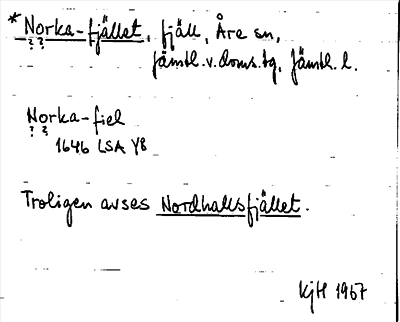 *Norka-fjället, fjäll, Åre sn,
? ?
jämtl.v.doms.tg, Jämtl. l.
Norka-fiel
? ?
1646 LSA Y8
Troligen avses Nordhallsfjället.
KjH 1967